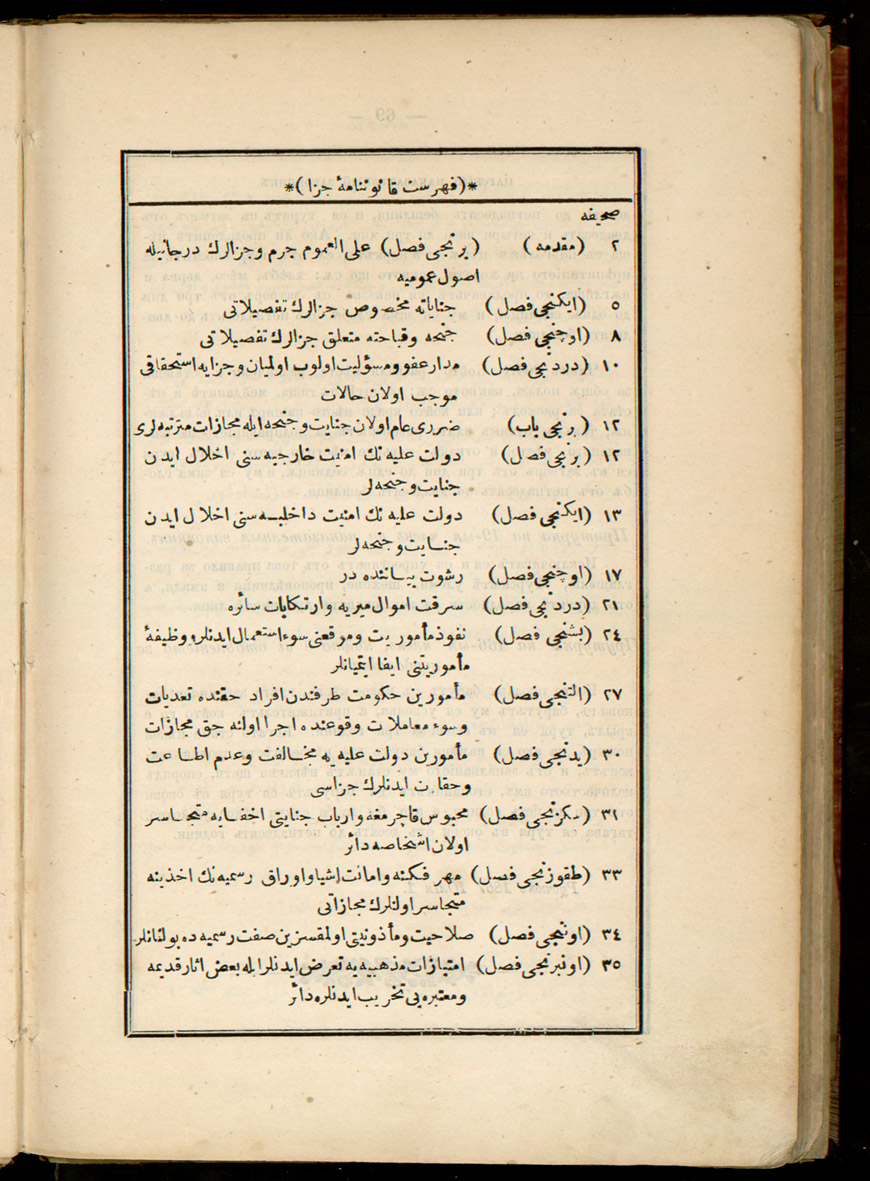 *(فهرست قانوننامهٔ جزا)*
صحیفه
٢ (مقدمه) (برنجی فصل) علی العموم جرم وجزالرك درجاتیله
اصول عمومیه
٥ (ایکنجی فصل) جنایاته مخصوص جزالرك تفصیلاتی
٨ (اوچنجی فصل) جنحه وقباحته متعلق جزالرك تفصیلاتی
١٠ (دردنجی فصل) مدار عفو ومسؤلیت اولوب اولمیان وجزایه استحقاقی
موجب اولان حالات
١٢ (برنجی باب) ضرری عام اولان جنایت وجنحه ایله مجازات مترتبه لری
١٢ (برنجی فصل) دولت علیه نك امنیت خارجیه سنی اخلال ایدن
جنایت وجنحه لر
١٣ (ایکنجی فصل) دولت علیه نك امنیت داخلیه سنی اخلال ایدن
جنایت وجنحه لر
١٧ (اوچنجی فصل) رشوت بیاننده در
٢١ (دردنجی فصل) سرقت اموال میریه وارتکابات سائره
٢٤ (بشنجی فصل) نفوذ مأموریت وموقعنی سوء استعمال ایدنلر ووظیفهٔ
مأموریتنی ایفا ایتمیانلر
٢٧ (التنجی فصل) مأمورین حکومت طرفندن افراد حقنده تعدیات
وسوء معاملات وقوعنده اجرا اولنه جق مجازات
٣٠ (یدنجی فصل) مأمورین دولت علیه یه مخالفت وعدم اطاعت
وحقارت ایدنلرك جزاسی
٣١ (سکزنجی فصل) محبوس قاچرمغه وارباب جنایتی اخفایه متجاسر
اولان اشخاصه دائر
٣٣ (طقوزنجی فصل) مهر فکنه وامانت اشیا واوراق رسمیه نك اخذینه
متجاسر اولنلرك مجازاتی
٣٤ (اوننجی فصل) صلاحیت ومأذونیتی اولمقسزین صفت رسمیه ده بولنانلر
٣٥ (اونبرنجی فصل) امتیازات مذهبیه یه تعرض ایدنلر ایله بعض اثار قدیمه
ومعتبره یی تخریب ایدنلره دائر